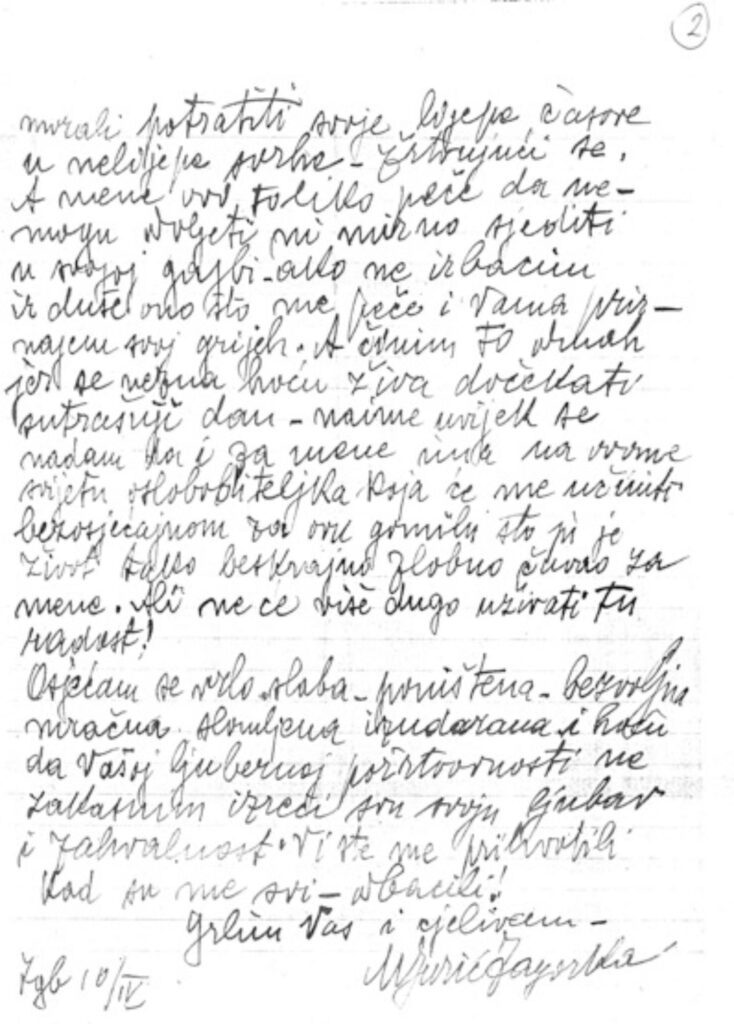 2
morali potratiti svoje lijepe časove
u nelijepe svrhe - žrtvujući se.
A mene ovo toliko peče da ne-
mogu voljeti ni mirno sjediti
u svojoj gajbi - ako ne izbacim
iz duše ono što me peče i Vama priz-
najem svoj grijeh. A činim to odmah
jer se nezna hoću živa dočekati
sutrašnji dan - naime uvijek se
nadam da i za mene ima na ovome
svijetu osloboditeljka koja će me učiniti
bezosjećajnom za ovu gomilu što ju je
život tako beskrajno zlobno čuvao za
mene. Ali ne će više dugo uživati tu
radost!
Osjećam se vrlo slaba - poništena - bezvoljna
mračna slomljena izudarana i hoću
da Vašoj ljubeznoj požrtvovnosti ne
zakasnim izreći svu svoju ljubav
i zahvalnost. Vi ste me prihvatili
kad su me svi - odbacili!
Grlim Vas i cjelivam -
MJurić Zagorka
Zgb 10/IV